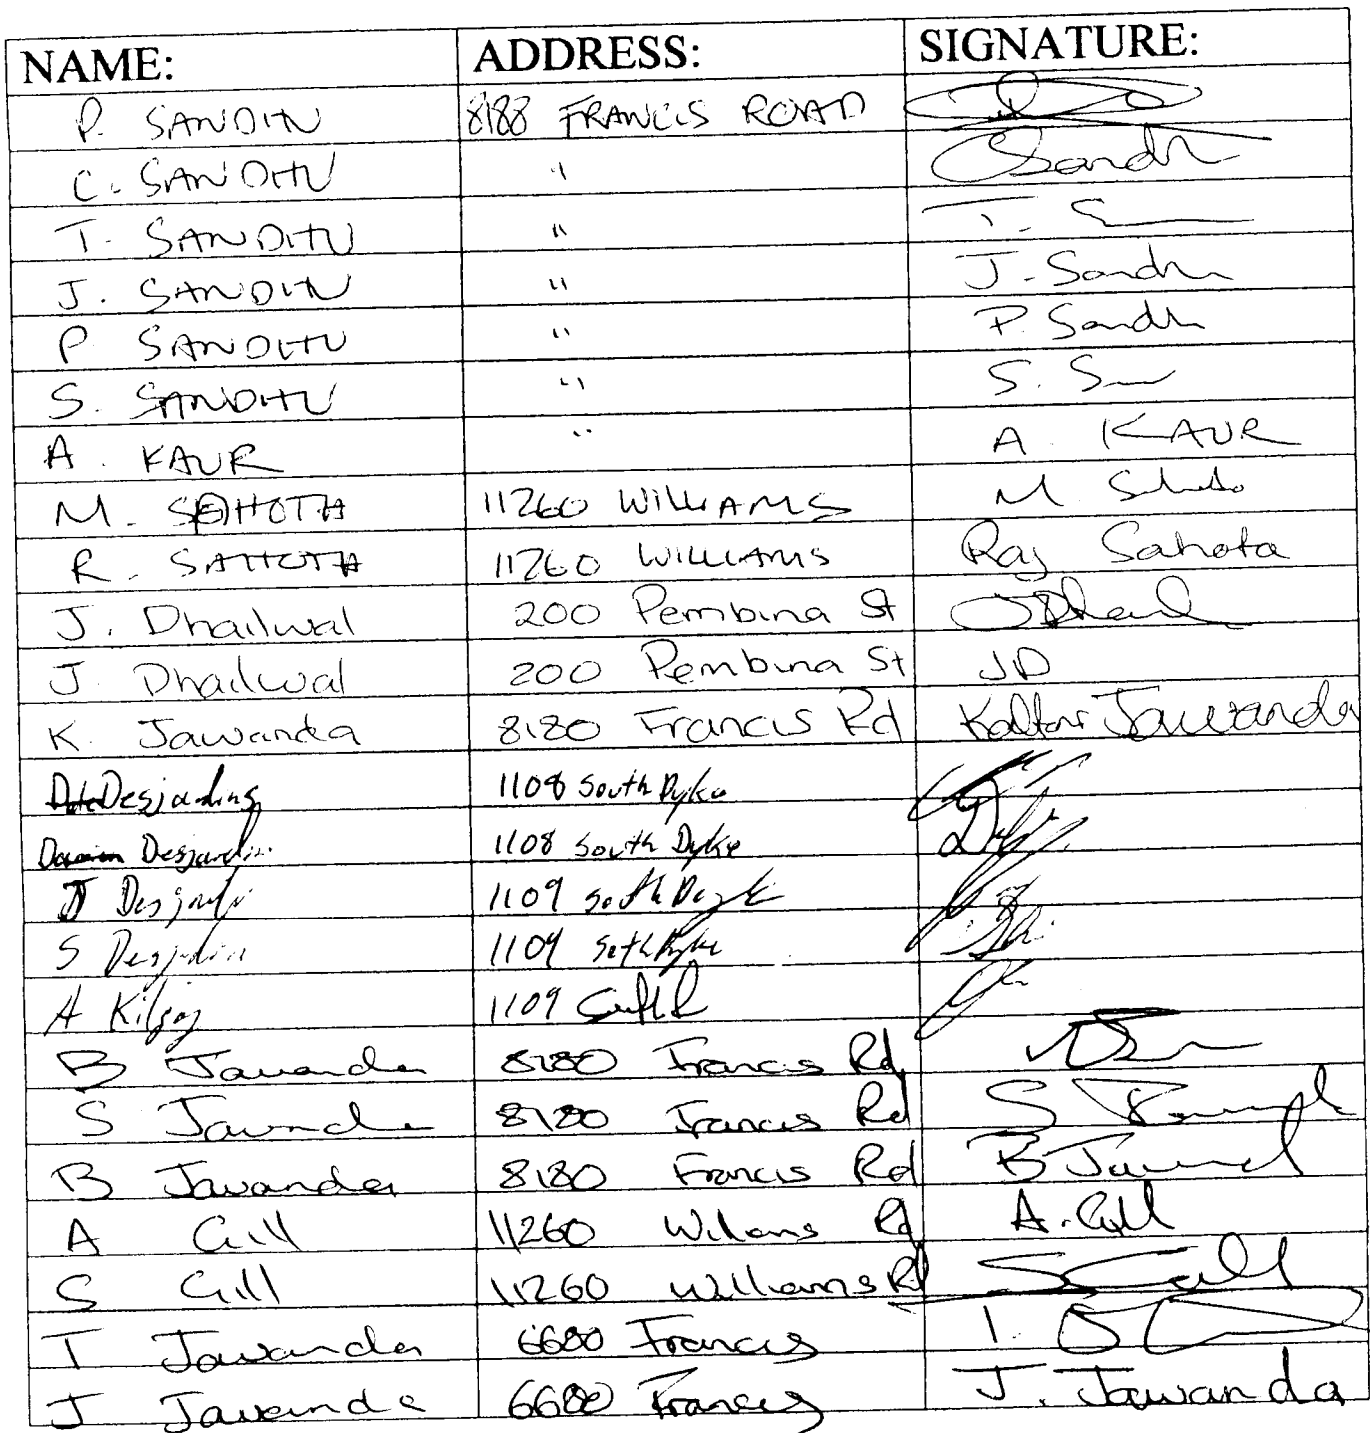 NAME: ADDRESS: SIGNATURE:
P. SANDHU 8188 FRANCIS ROAD
C. SANDHU " Sandh
T. SANDHU " T. S
J. SANDHU " J. Sandhu
P SANDHU " P. Sandh
S. SANDHU " S. S
A. KAUR " A KAUR
M. SAHOTA 11260 WILLIAMS M
R. SAHOTA 11260 WILLIAMS Raj Sahota
J. Dhailwal 200 Pembina St
J. Dhailwal 200 Pembina St JD
K. Jawanda 8180 Francis Rd Jawanda
Desjardins 1108 South Dyke
Desjardin 1108 South Dyke
Desjardin 1109 South Dyke
S Desjardin 1109 South Dyke
A 1109
B Jawanda 8180 Francis Rd
S Jawanda 8180 Francis Rd S
B Jawanda 8180 Francis Rd B Jawand
A Gill 11260 Willams Rd A. Gill
S Gill 11260 Williams Rd S Gill
T Jawanda 6680 Francis T.
J Jawanda 6680 Francis J. Jawanda